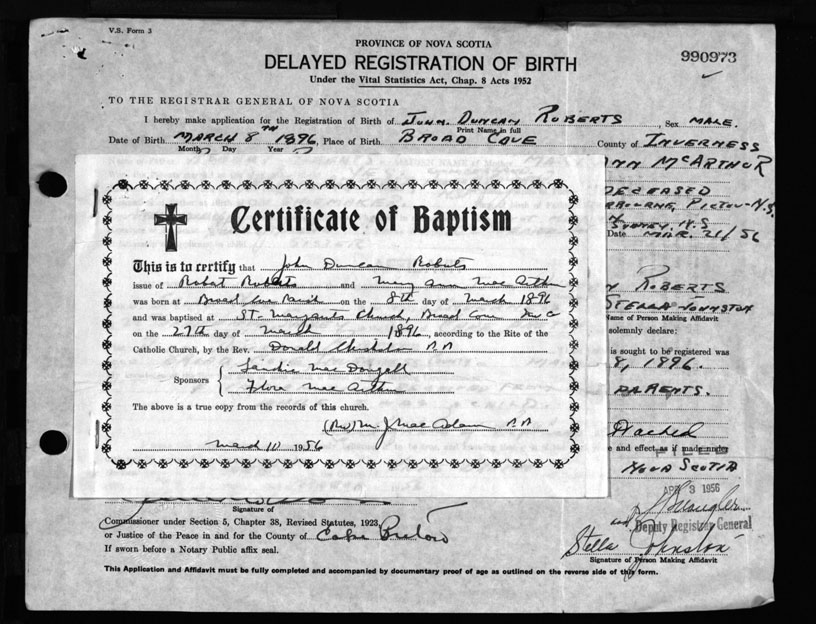 V.S. Form 3
PROVINCE OF NOVA SCOTIA
DELAYED REGISTRATION OF BIRTH
990973
Under the Vital Statistics Act, Chap. 8 Acts 1952
TO THE REGISTRAR GENERAL OF NOVA SCOTIA
I hereby make application for the Registration of Birth of JOHN DUNCAN ROBERTS, Sex MALE.
Print Name in full
Date of Birth MARCH 8TH 1896, Place of Birth BROAD COVE County of INVERNESS
Month Day Year
ANN MCARTHUR
DECEASED
PICTOU-N.S.
SYDNEY, N.S
Date MAR. 21/56
ROBERTS
STELLA JOHNSTON
Name of Person Making Affidavit
solemnly declare:
is sought to be registered was
8, 1896.
PARENTS.
Attached
e and effect as if made under
NOVA SCOTIA
APR 3 1956
Deputy Registrar General
Stella Johnston
Signature of Person Making Affidavit
Certificate of Baptism
This is to certify that John Duncan Roberts
issue of Robert Roberts and Mary Ann MacArthur
was born at Broad Cove Parish on the 8th day of March 1896
and was baptised at St. Margarets Church, Broad Cove
on the 27th day of March 1896, according to the Rite of the
Catholic Church, by the Rev. Donald Chisholm P.P.
Sponsors
MacDougall
Flora MacArthur
The above is a true copy from the records of this church.
(Rev) M. J. MacAdam P.P.
March 10 1956
Signature of
Commissioner under Section 5, Chapter 38, Revised Statutes, 1923,
or Justice of the Peace in and for the County of Cape Breton
If sworn before a Notary Public affix seal.
This Application and Affidavit must be fully completed and accompanied by documentary proof of age as outlined on the reverse side of this form.